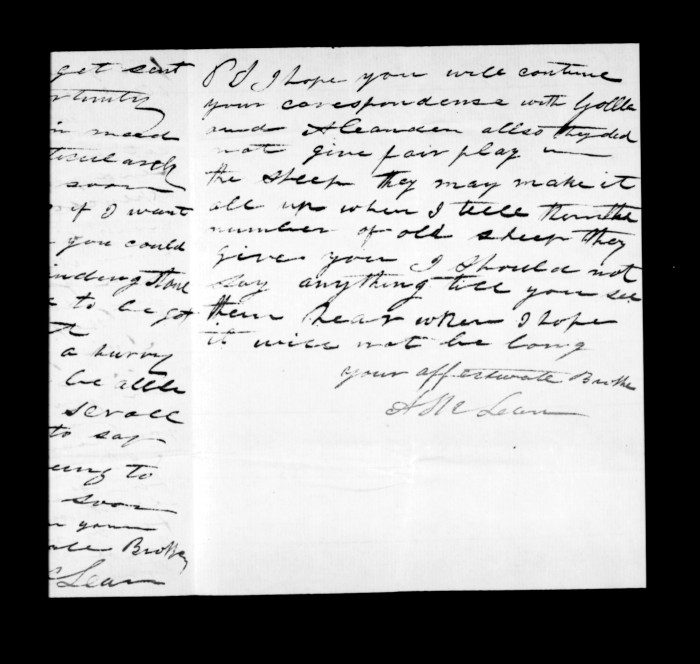 get sent
rtunity
in need
ticularly
soon
if I want
you could
inding Stone
to be got
a hurry
be able
scroll
to say
eing to
soon
your
Brother
cLean
P S I hope you will continue
your corespondense with Gollan
and Aleander allso they did
not give fair play in
the sheep they may make it
all up when I tell them the
number of old sheep they
give you I should not
say anything till you see
them hear when I hope
it will not be long
your affectinate Brother
A McLean